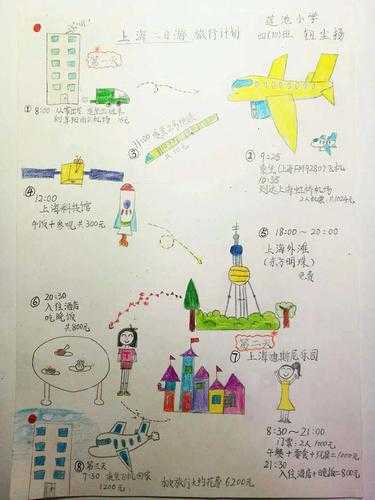 上海二日游 旅行计划
莲池小学
四(10)班
第一天
① 8:00 从家出发
70元
③
11:00
② 9:25
乘坐(上海FM9280)飞机
10:35
到达上海虹桥机场
2人机票:共1024元
④
12:00
上海科技馆
午饭+参观共300元
⑤ 18:00~20:00
上海外滩
(东方明珠)
免费
⑥ 20:30
入住酒店
吃晚饭
共800元
第二天
⑦ 上海迪斯尼乐园
8:30~21:00
门票:2人1000元
午餐+零食+玩具=1000元
21:30
入住酒店+晚饭=800元
⑧ 第三天
7:30 乘坐飞机回家
1200元
本次旅行大约花费6200元